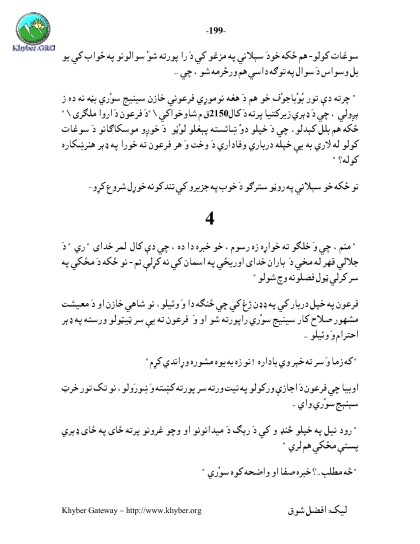 -199-
Khyber.ORG
سوغات کولو- هم ځکه خودَ سېلاني په مزغو کي دَ را پورته شوْ سوالونو په ځواب کي يو
بل وسواس دَ سوال په توګه داسي هم ورڅرمه شو ، چي ..
" چرته دې تور بُوباجوګ خو هم دَ هغه نوموړي فرعوني خازن سينيج سوْري بڼه نه ده ز
، چي دَ ډېري زيرکتيا په ترڅ دَ کال2150ق م شاوخواکي \"دَ فرعون دَ اروا ملګری \"
ځکه هم بلل کېدلو ، چي دَ خپلو دوْ ښائسته پېغلو لوْڼو دَ خوږو موسکاګانو دَ سوغات
کولو له لارې به يې خپله درباري وفاداري دَ وخت وَ هر فرعون ته خورا په ډېر هنرښکاره
کوله؟ "
نو ځکه خو سېلاني په روڼو سترګو دَ خوب په جزيرو کي تندکونه خوړل شروع کړو-
4
" منم ، چي وَ خلګو ته خواړه زه رسوم ، خو خبره دا ده ، چي دې کال لمر خدای "ري" دَ
جلالي قهر له مخي دَ باران خدای اورېځي په اسمان کي نه کړلې تم - نو ځکه دَ مځکي په
سر کرلي ټول فصلونه وچ شولو "
فرعون په خپل دربار کي په ډډن ږغ کي چي څنګه دا وَ وئيلو ، نو شاهي خازن او دَ معيشت
مشهور صلاح کار سينيج سوْري راپورته شو او وَ فرعون ته يې سر ټيټولو ورسته په ډېر
احترام وَ وئيلو ..
"که زما وَ سر ته خبر وي باداره ! نو زه به يوه مشوره وړاندي کړم"
اوبيا چي فرعون دَ اجازې ورکولو په نيت ورته سر پورته کښته وَ ښوروَلو ، نو تک تور خرټ
سينيج سوْري وای ..
" رود نيل په خپلو څنډو کي دَ رېګ دَ ميدانونو او وچو غرونو پرته ځای په ځای ډېري
پستي مځکي هم لري "
"څه مطلب..؟ خبره صفا او واضحه کوه سوْري "
ليک: افضل شوق
Khyber Gateway – http://www.khyber.org